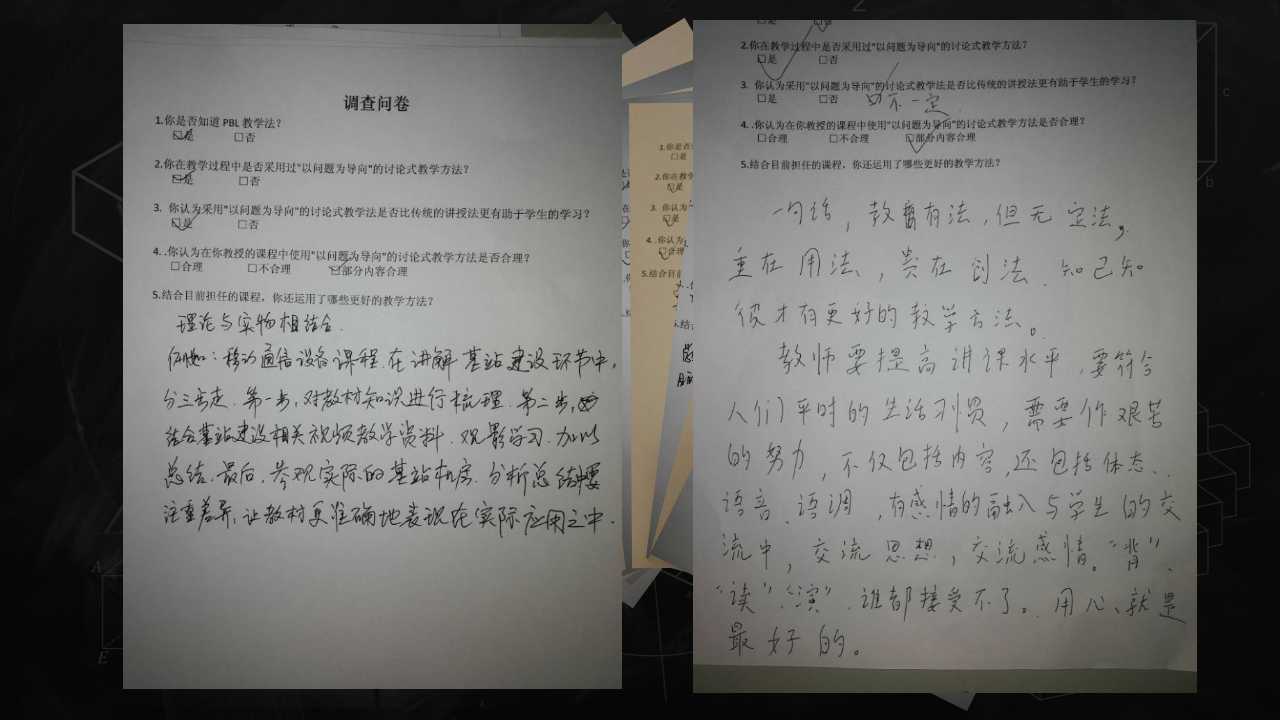 调查问卷
1.你是否知道 PBL 教学法？
□是 □否
2.你在教学过程中是否采用过"以问题为导向"的讨论式教学方法？
□是 □否
3. 你认为采用"以问题为导向"的讨论式教学法是否比传统的讲授法更有助于学生的学习？
□是 □否
4. .你认为在你教授的课程中使用"以问题为导向"的讨论式教学方法是否合理？
□合理 □不合理 □部分内容合理
5.结合目前担任的课程，你还运用了哪些更好的教学方法？
理论与实物相结合.
例如：移动通信设备课程.在讲解基站建设环节中,
分三步走.第一步,对教材知识进行梳理.第二步,
结合基站建设相关视频教学资料.观影学习.加以
总结.最后.参观实际的基站机房.分析总结
注重差异,让教材更准确地表现在实际应用之中.
1.你是否
□是
2.你在教学
□是
3. 你认为
□是
4. .你认为
□合理
5.结合目前
□是 □否
2.你在教学过程中是否采用过"以问题为导向"的讨论式教学方法？
□是 □否
3. 你认为采用"以问题为导向"的讨论式教学法是否比传统的讲授法更有助于学生的学习？
□是 □否 不一定
4. .你认为在你教授的课程中使用"以问题为导向"的讨论式教学方法是否合理？
□合理 □不合理 □部分内容合理
5.结合目前担任的课程，你还运用了哪些更好的教学方法？
一句话，教育有法,但无定法,
重在用法，贵在创法.知己知
彼才有更好的教学方法。
教师要提高讲课水平,要符合
人们平时的生活习惯，需要作艰苦
的努力,不仅包括内容,还包括体态、
语音、语调,有感情的融入与学生的交
流中,交流思想,交流感情。"背"、
"读"、"演".谁都接受不了。用心、就是
最好的。
A
E
C
b